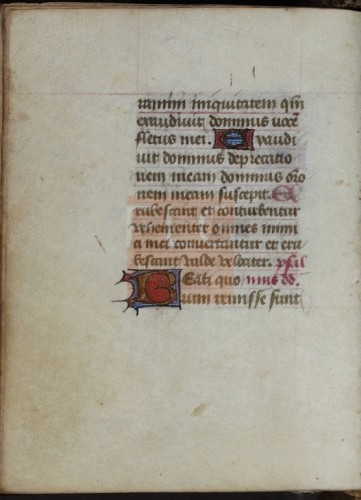 ramini iniquitatem qm
exaudivit dominus voce
fletus mei. Exaudi
vit dominus deprecatio
nem meam dominus oro
nem meam suscepit. E
rubescant et conturbentur
vehementer omnes inimi
ci mei convertantur et eru
bescant valde velociter. psal
Beati quo mus dd.
rum remisse sunt